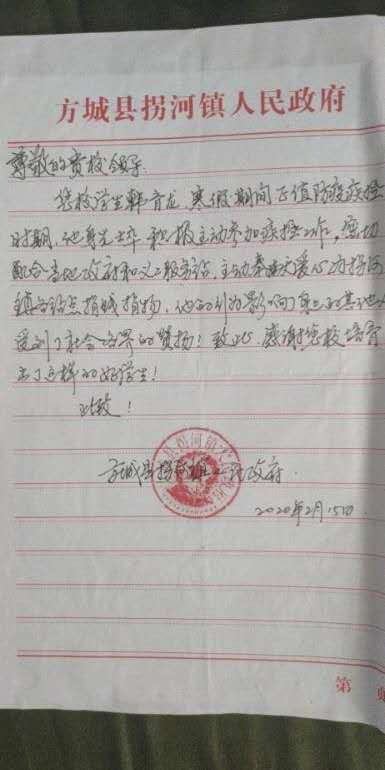 方城县拐河镇人民政府
尊敬的贵校领导
您校学生韩育龙 寒假期间正值防疫疾控
时期,他身先士卒 积极主动参加疾控工作,密切
配合当地政府和义工服务站,主动奉献爱心为拐河
镇各站点捐钱捐物,他的行为影响了身边的其他人
受到了社会各界的赞扬!致此,感谢您校培育
出了这样的好学生!
此致!
方城县拐河镇人民政府
2020年2月15日
第